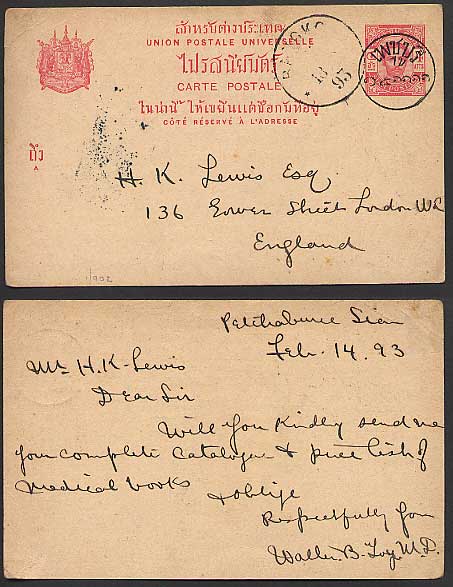 สำหรับต่างประเทศ
UNION POSTALE UNIVERSELLE
ไปรสนียบัตร์
CARTE POSTALE
ในน่านี้ ให้เขียนแต่ชื่อกับที่อยู่
CÔTÉ RÉSERVÉ À L'ADRESSE
BANGKOK
18
93
ถึง
A
H. K. Lewis Esq
136 Gower Street London W.C.
England
1902
Petchaburee Siam
Feb. 14. 93
Mr. H. K. Lewis
Dear Sir
Will you kindly send me
your complete Catalogue & price list of
Medical books & oblige
Respectfully yours
Walter B. Toy M.D.